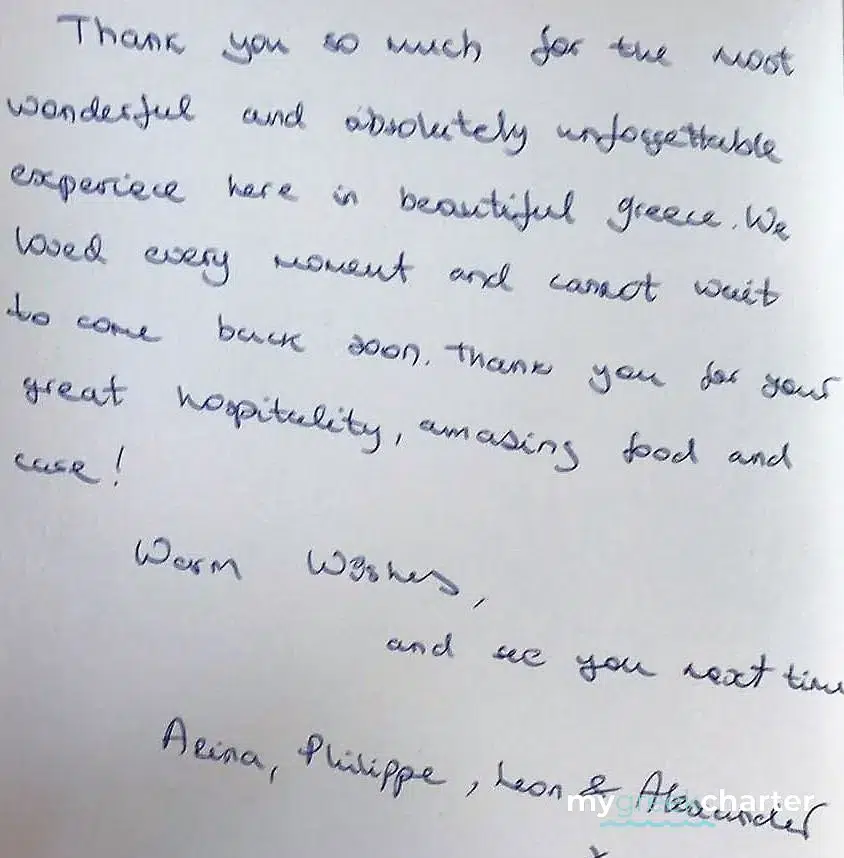 Thank you so much for the most
wonderful and absolutely unforgettable
experiece here in beautiful greece. We
loved every moment and cannot wait
to come back soon. Thank you for your
great hospitality, amazing food and
care!
Warm Wishes,
and see you next time
Arina, Philippe, Leon & Alexander
mygreekcharter
x